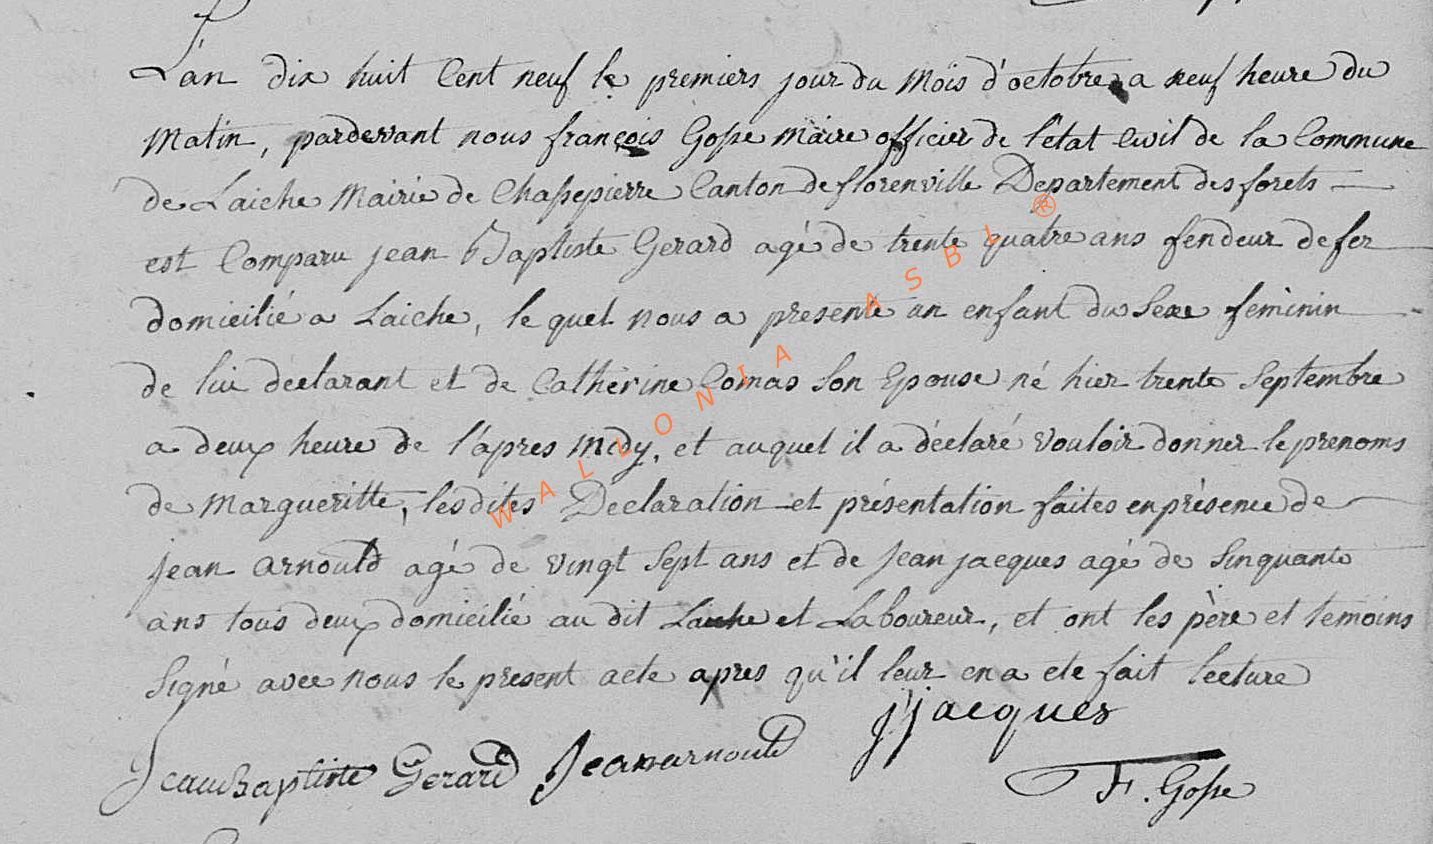 L'an dix huit Cent neuf le premiers jour du Mois d'octobre a neuf heure du
Matin, pardevant nous françois Gosse Maire officier de l'état Civil de la Commune
de Laiche Mairie de Chassepierre Canton de florenville Departement des forets
est Comparu jean Baptiste Gerard agé de trente quatre ans fendeur de fer
domicilié a Laiche, le quel nous a presenté un enfant du Sexe féminin
de lui déclarant et de Cathérine Comas Son Epouse né hier trente Septembre
a deux heure de l'âpres Midy, et auquel il a déclaré vouloir donner le prenoms
de Margueritte, lesdites Declaration et présentation faites en présence de
jean arnould agé de vingt Sept ans et de jean jacques agé de Sinquante
ans tous deux domicilié au dit Laiche et Laboureur, et ont les père et temoins
Signé avec nous le present acte apres qu'il leur en a ete fait lecture
j'jacques
Jean Baptiste Gerard Jean arnould
F. Gosse
WALLONIA ASBL ®